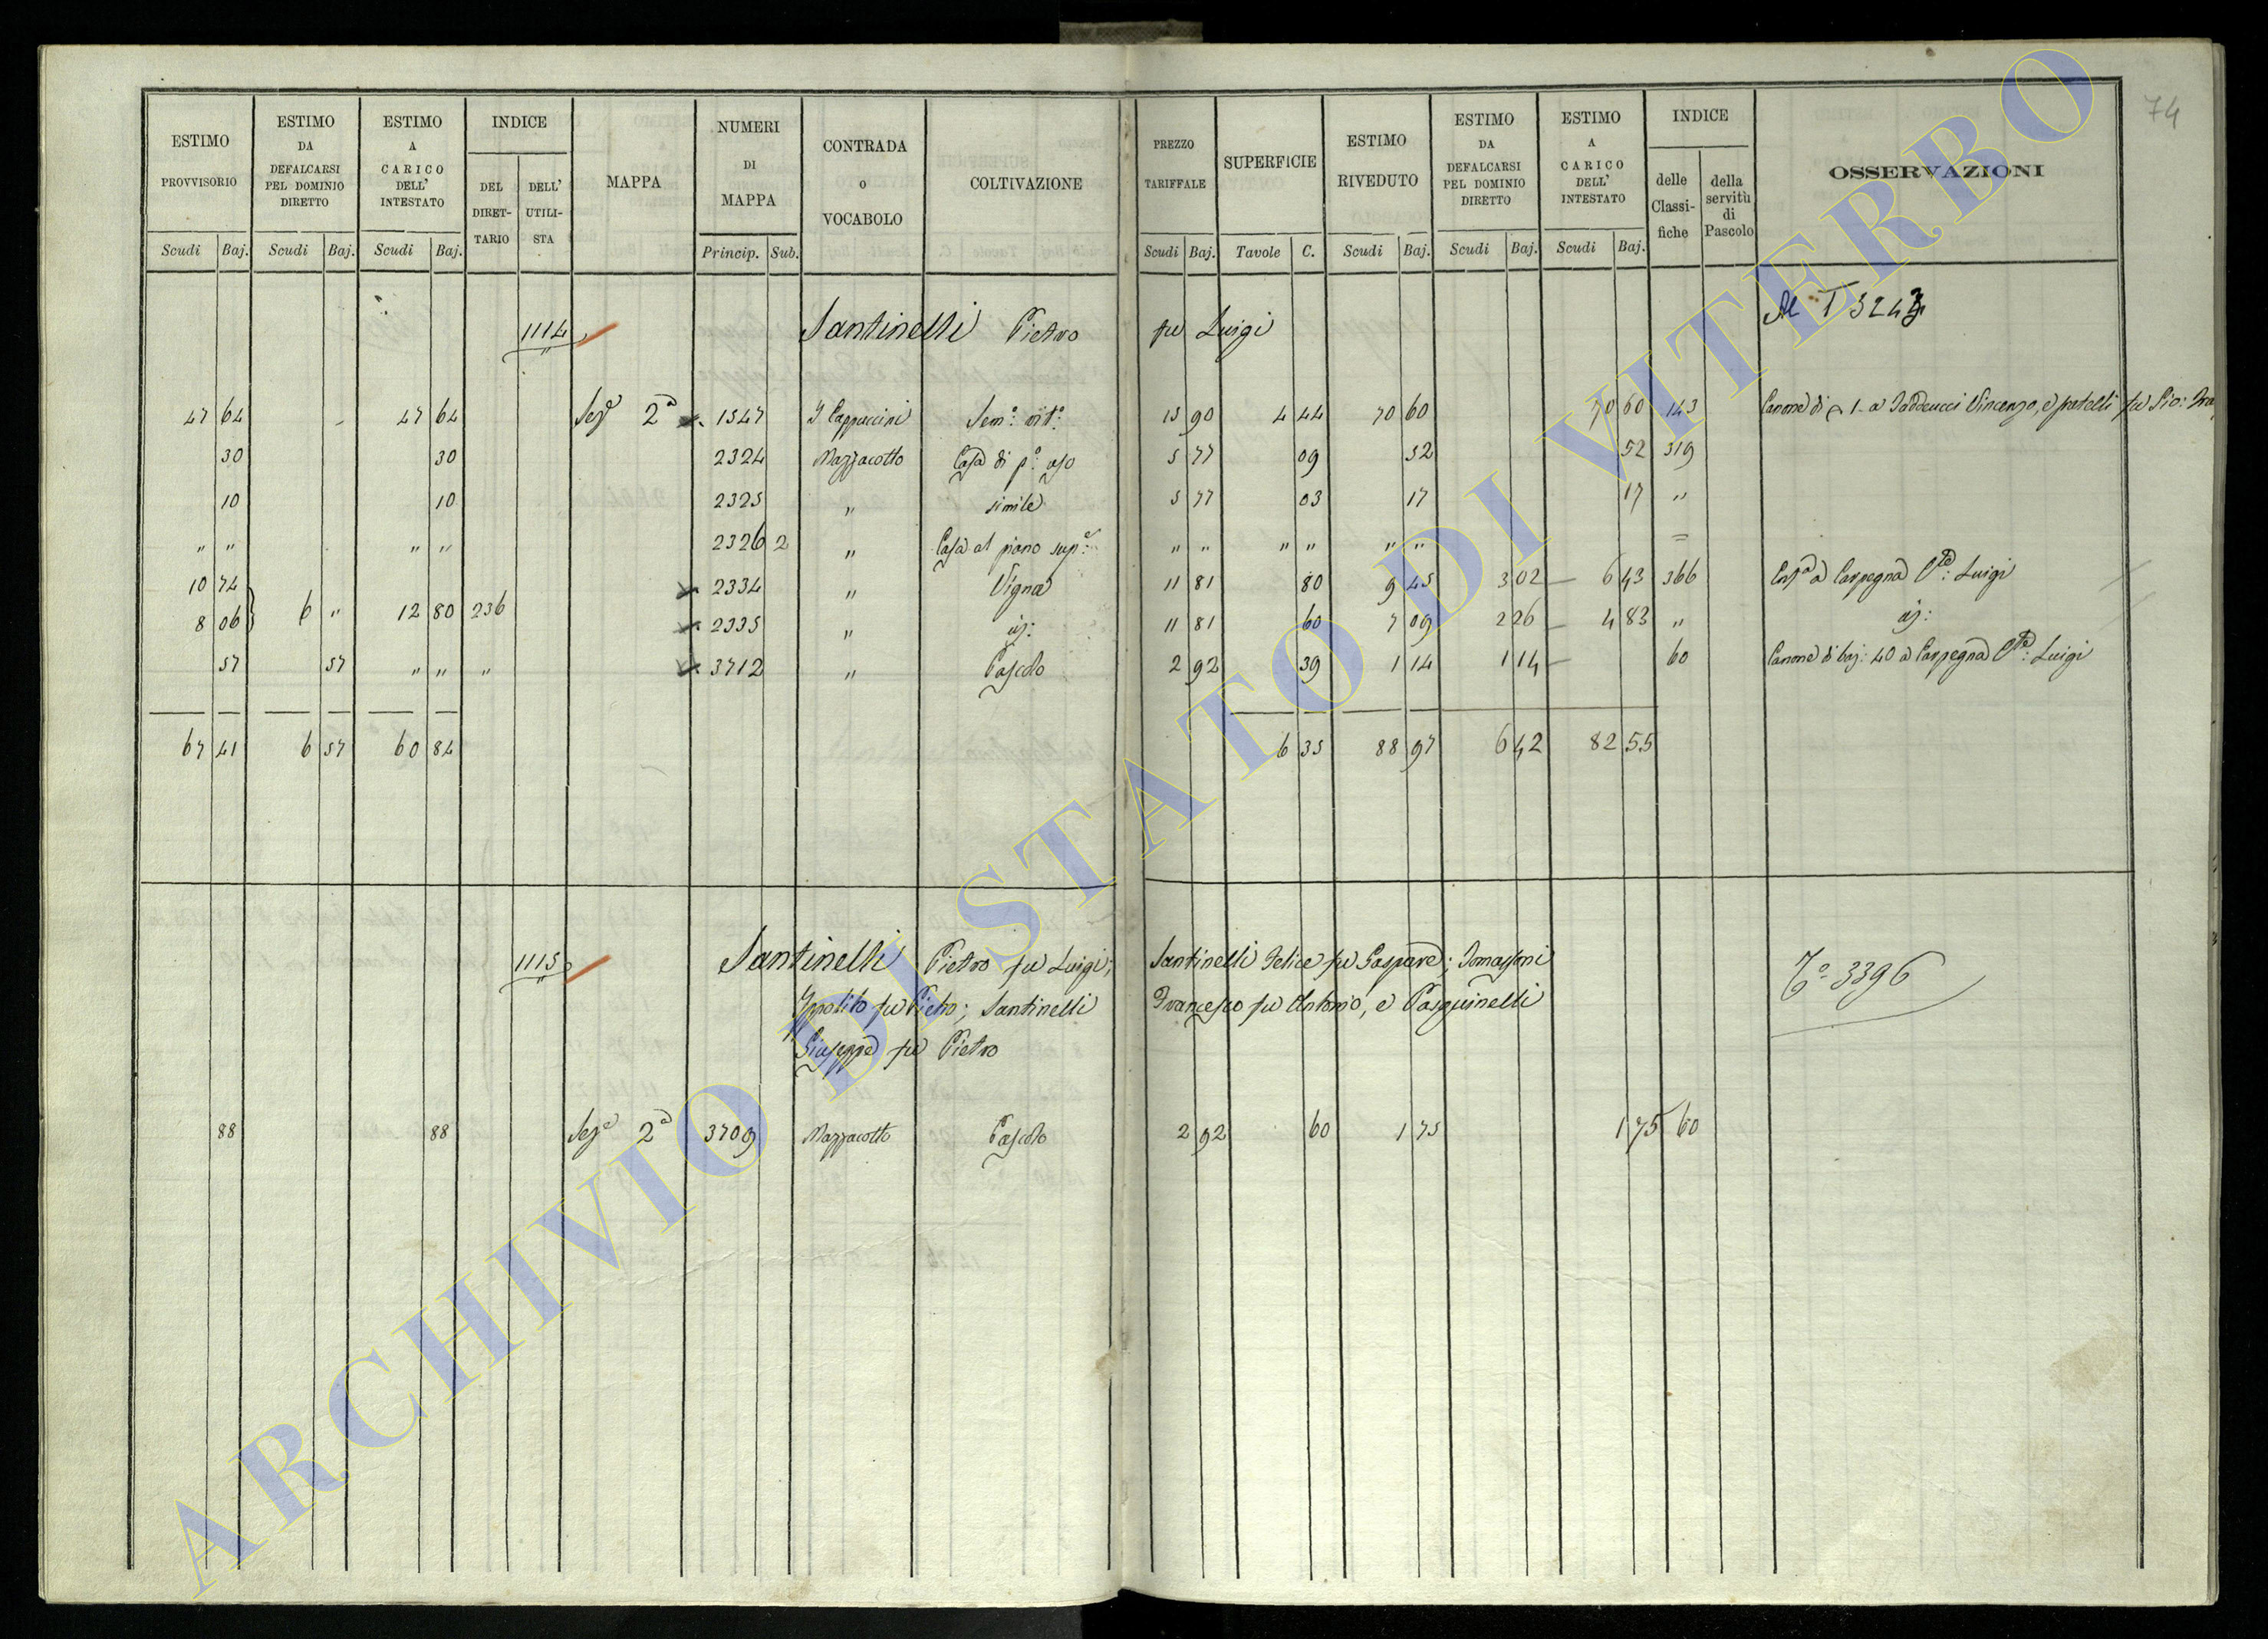 74
ESTIMO PROVVISORIO
ESTIMO DA DEFALCARSI PEL DOMINIO DIRETTO
ESTIMO A CARICO DELL' INTESTATO
INDICE
DEL DIRET-TARIO
DELL' UTILI-STA
MAPPA
NUMERI DI MAPPA
CONTRADA o VOCABOLO
COLTIVAZIONE
PREZZO TARIFFALE
SUPERFICIE
ESTIMO RIVEDUTO
ESTIMO DA DEFALCARSI PEL DOMINIO DIRETTO
ESTIMO A CARICO DELL' INTESTATO
INDICE
delle Classi-fiche
della servitù di Pascolo
OSSERVAZIONI
Scudi Baj. Scudi Baj. Scudi Baj. Princip. Sub. Scudi Baj. Tavole C. Scudi Baj. Scudi Baj. Scudi Baj.
1114 Santinelli Pietro fu Luigi Al T 3243
47 64 47 64 Sez.e 2a 1547 I Cappuccini Sem.o vit.o 15 90 4 44 70 60 70 60 143 Canone di 1 a Taddeucci Vincenzo, e fratelli fu Gio:
30 30 2324 Mazzacotto Casa di p.o uso 5 77 09 52 52 319
10 10 2325 " simile 5 77 03 17 17 "
" " " " 2326 2 " Casa al piano sup.e " " " " " " =
10 74 2334 " Vigna 11 81 80 9 45 3 02 6 43 366 Enf.a a Carpegna C.te: Luigi
8 06 6 " 12 80 236 2335 " id: 11 81 60 7 09 2 26 4 83 " id:
57 57 " " " 3712 " Pascolo 2 92 39 1 14 1 14 60 Canone di baj: 40 a Carpegna C.te: Luigi
67 41 6 57 60 84 6 35 88 97 6 42 82 55
1115 Santinelli Pietro fu Luigi; Santinelli Felice fu Gaspare; Tomassoni
Ippolito fu Pietro; Santinelli Francesco fu Antonio, e Pasquinelli
Giuseppe fu Pietro
To 3396
88 88 Sez.e 2a 3709 Mazzacotto Pascolo 2 92 60 1 75 1 75 60
ARCHIVIO DI STATO DI VITERBO